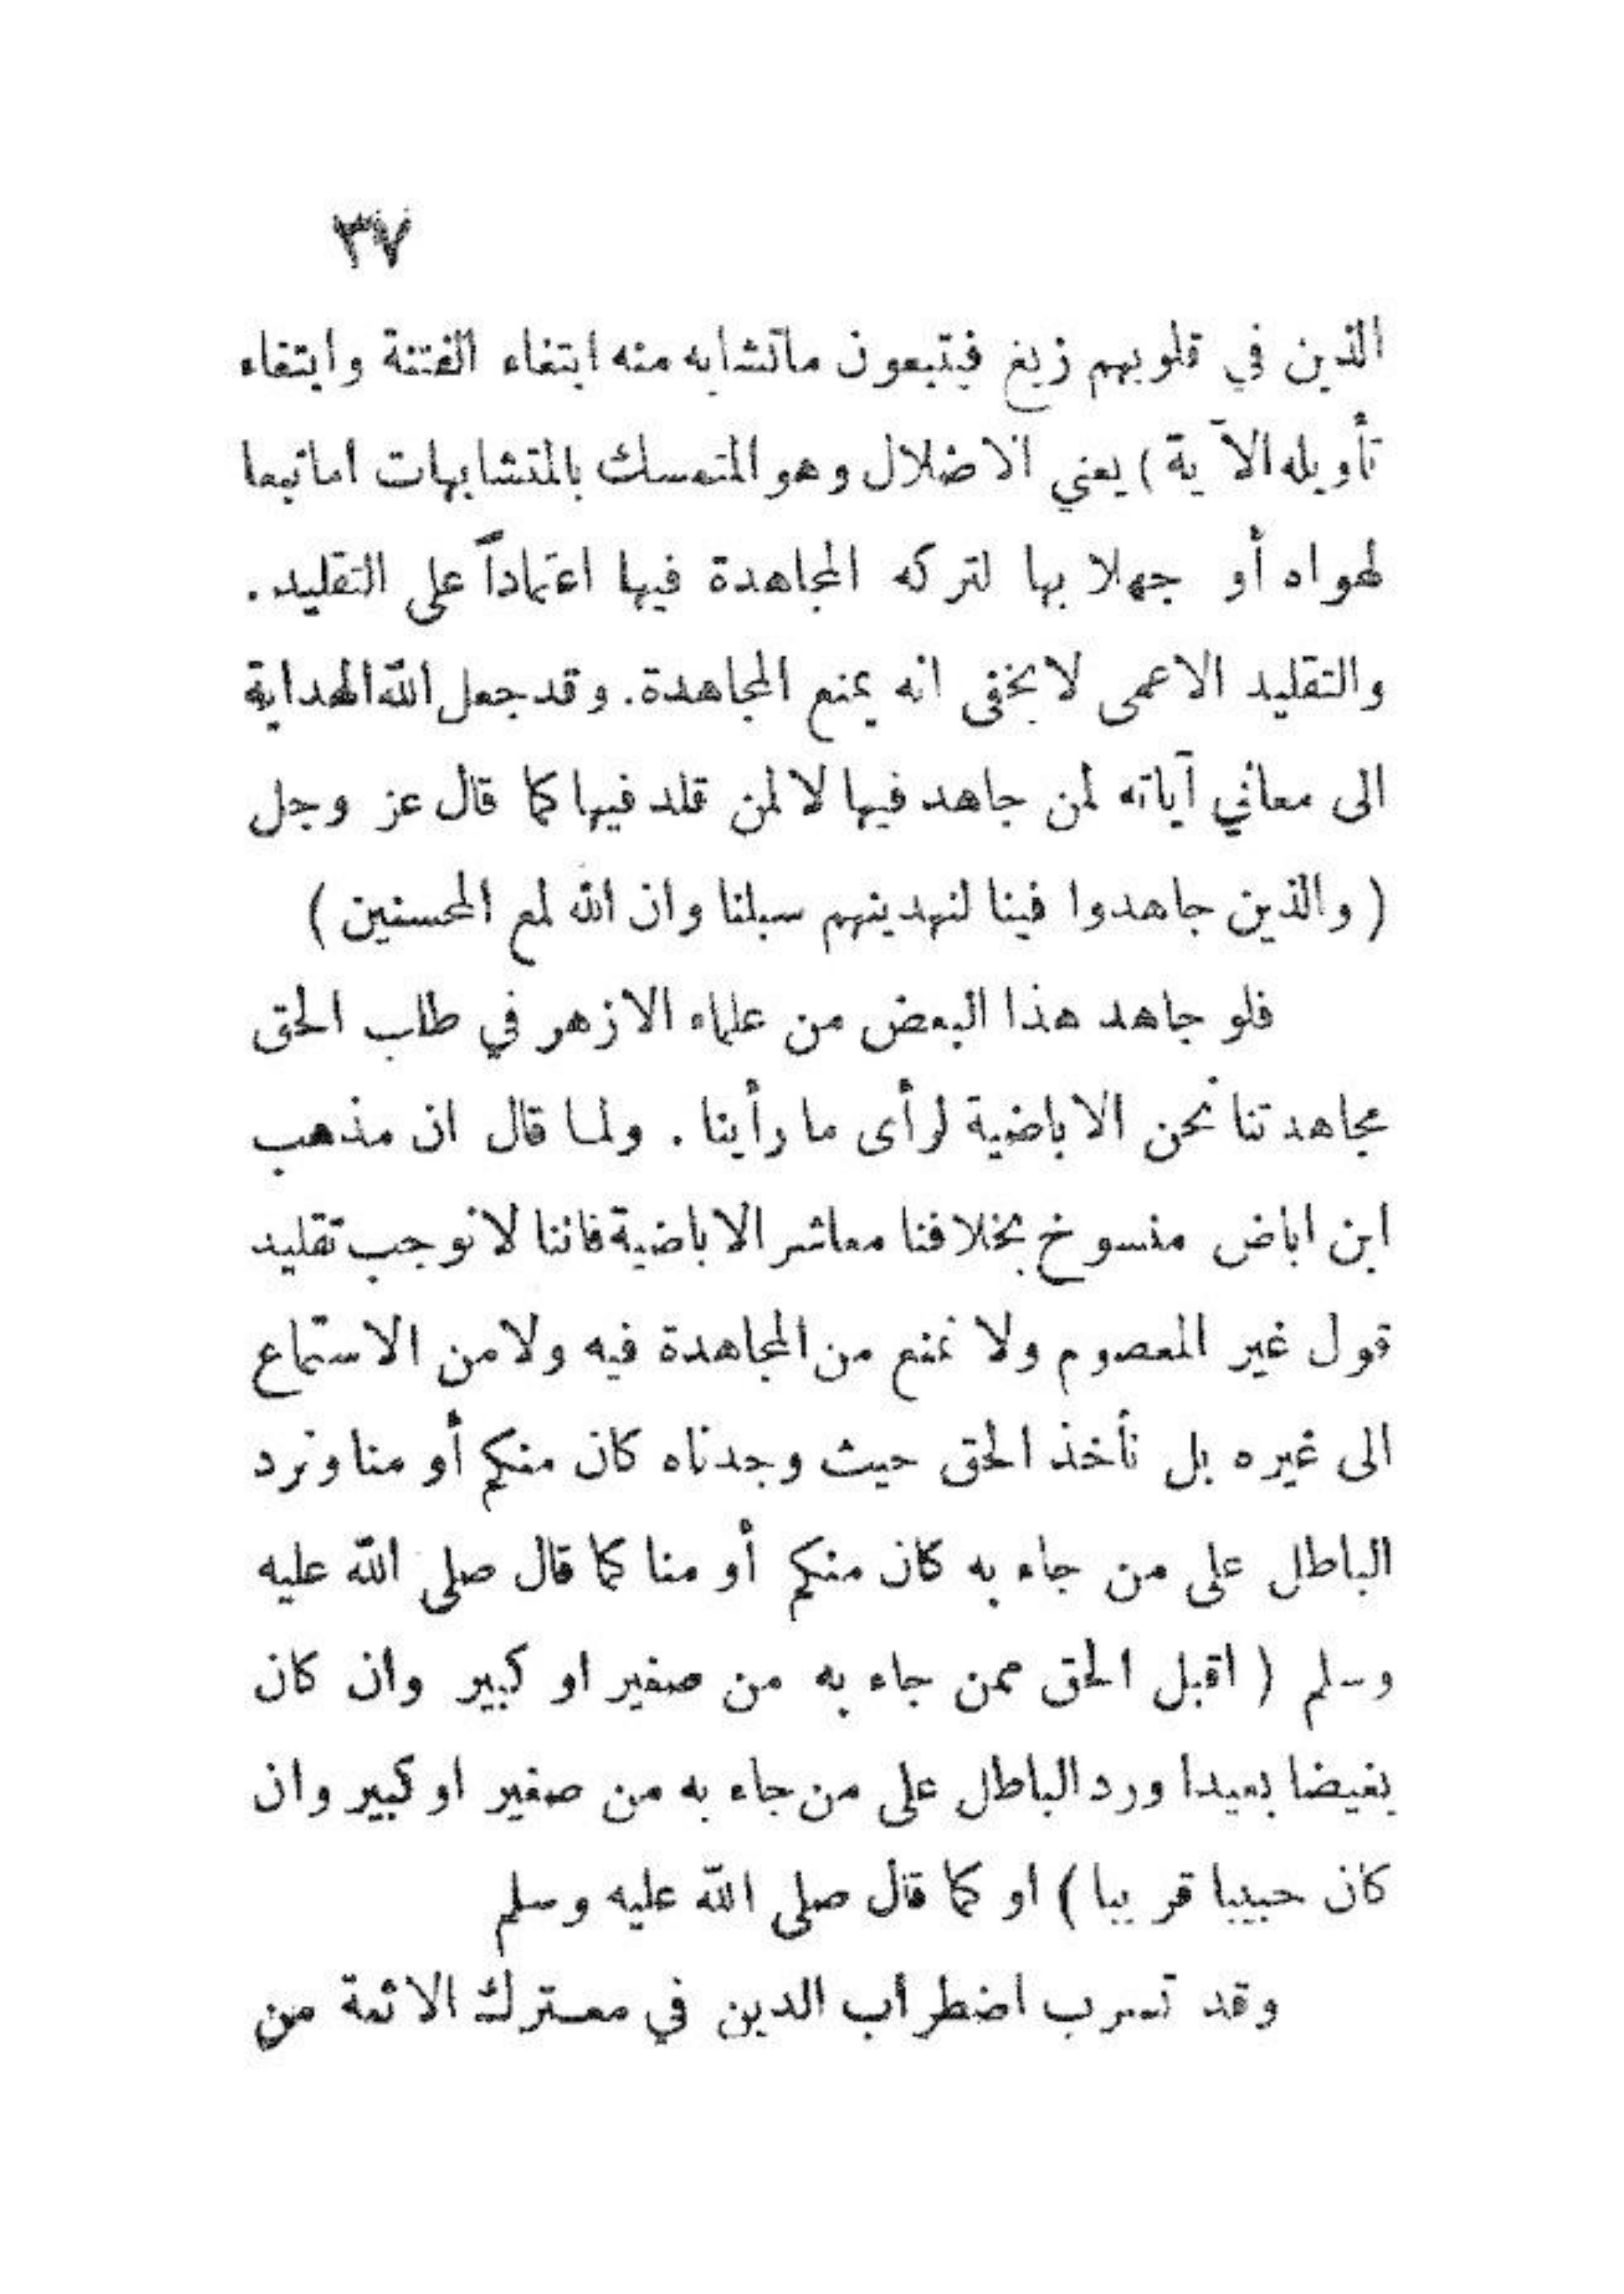 ٣٧
الذين في قلوبهم زيغ فيتبعون ماتشابه منه ابتغاء الفتنة وابتغاء
تأويله الآية ) يعني الاضلال وهو المتمسك بالمتشابهات اما تبعا
لهواه أو جهلا بها لتركه المجاهدة فيها اعتماداً على التقليد .
والتقليد الاعمى لا يخفى انه يمنع المجاهدة . وقد جعل الله الهداية
الى معاني آياته لمن جاهد فيها لا لمن قلد فيها كما قال عز وجل
( والذين جاهدوا فينا لنهدينهم سبلنا وان الله لمع المحسنين )
فلو جاهد هذا البعض من علماء الازهر في طلب الحق
مجاهدتنا نحن الاباضية لرأى ما رأينا . ولما قال ان مذهب
ابن اباض منسوخ بخلافنا معاشر الاباضية فاننا لا نوجب تقليد
قول غير المعصوم ولا نمنع من المجاهدة فيه ولا من الاستماع
الى غيره بل نأخذ الحق حيث وجدناه كان منكم أو منا ونرد
الباطل على من جاء به كان منكم أو منا كما قال صلى الله عليه
وسلم ( اقبل الحق ممن جاء به من صغير او كبير وان كان
بغيضا بعيدا ورد الباطل على من جاء به من صغير او كبير وان
كان حبيبا قريبا ) او كما قال صلى الله عليه وسلم
وقد تسرب اضطراب الدين في معترك الائمة من